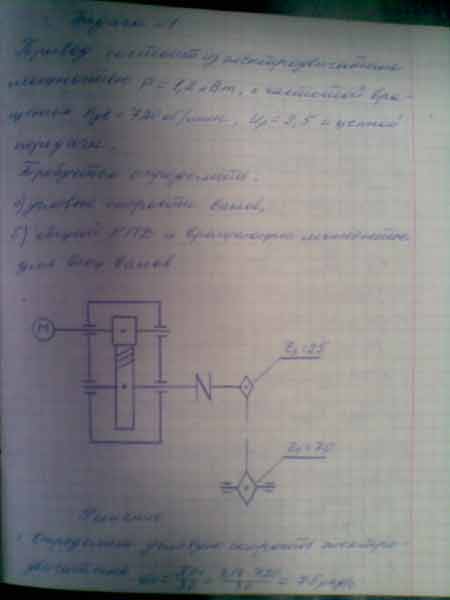 Задача - 1
Привод состоит из электродвигателя
мощностью P = 1,2 кВт, с частотой вра-
щения nдв = 720 об/мин, Up = 2,5 и цепной
передачи.
Требуется определить:
а) угловые скорости валов,
б) общий КПД и вращающие моменты
для всех валов.
M
Z3=25
Z4=70
Решение
1. Определяем угловую скорость электро-
двигателя = 3,14·720/30 = 75 рад/с